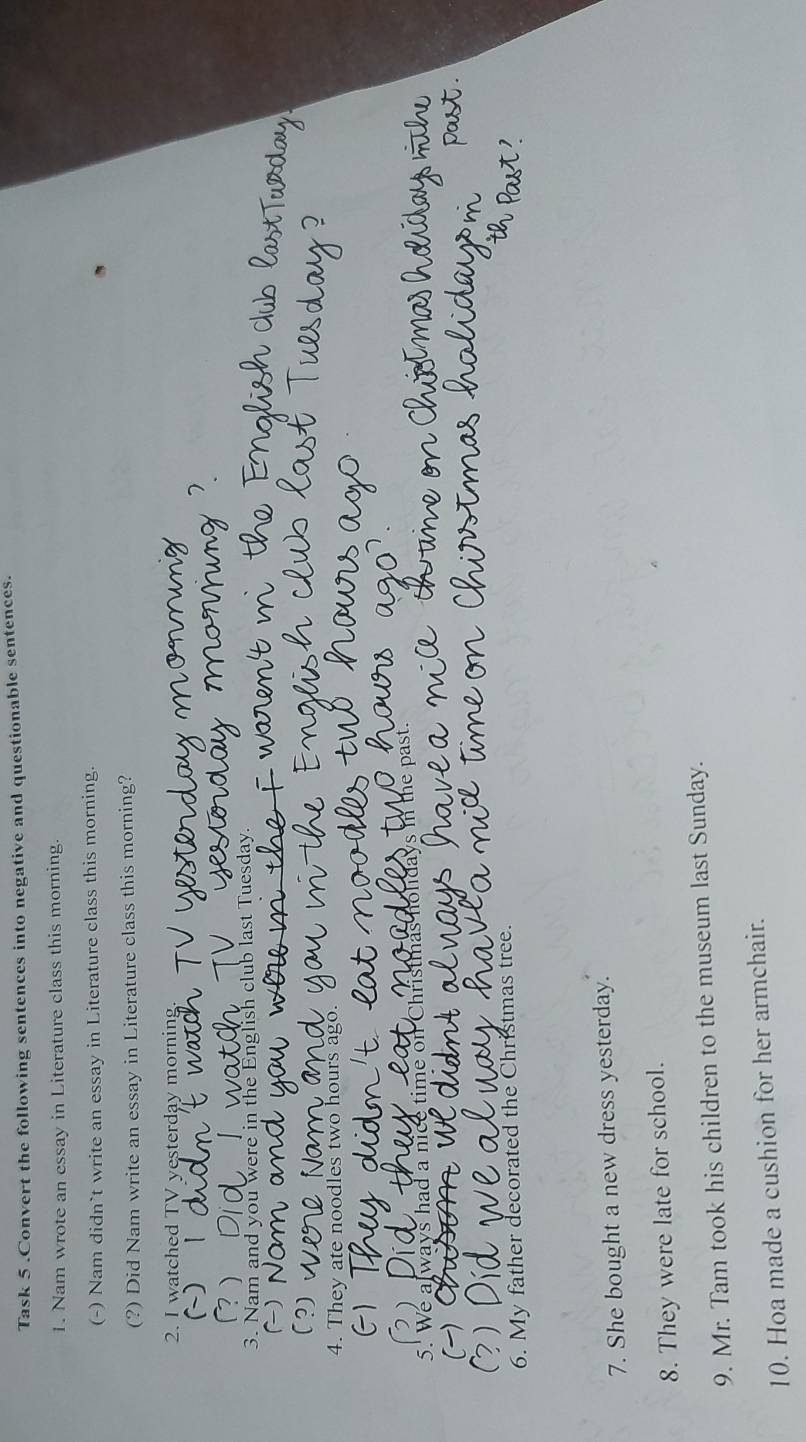 Task 5 .Convert the following sentences into negative and questionable sentences.
1. Nam wrote an essay in Literature class this morning.
(-) Nam didn`t write an essay in Literature class this morning.
(?) Did Nam write an essay in Literature class this morning?
2. I watched TV yesterday morning.
(-) I didn't watch TV yesterday morning
(?) Did I watch TV yesterday morning?
3. Nam and you were in the English club last Tuesday.
(-) Nam and you weren't in the English club last Tuesday.
(?) were Nam and you in the English club last Tuesday?
4. They ate noodles two hours ago.
(-) They didn't eat noodles two hours ago.
(?) Did they eat noodles two hours ago?
5. We always had a nice time on Christmas holidays in the past.
(-) we didn't always have a nice time on Christmas holidays in the past.
(?) Did we alway have a nice time on Chirstmas halidays in th Past?
6. My father decorated the Christmas tree.
7. She bought a new dress yesterday.
8. They were late for school.
9. Mr. Tam took his children to the museum last Sunday.
10. Hoa made a cushion for her armchair.